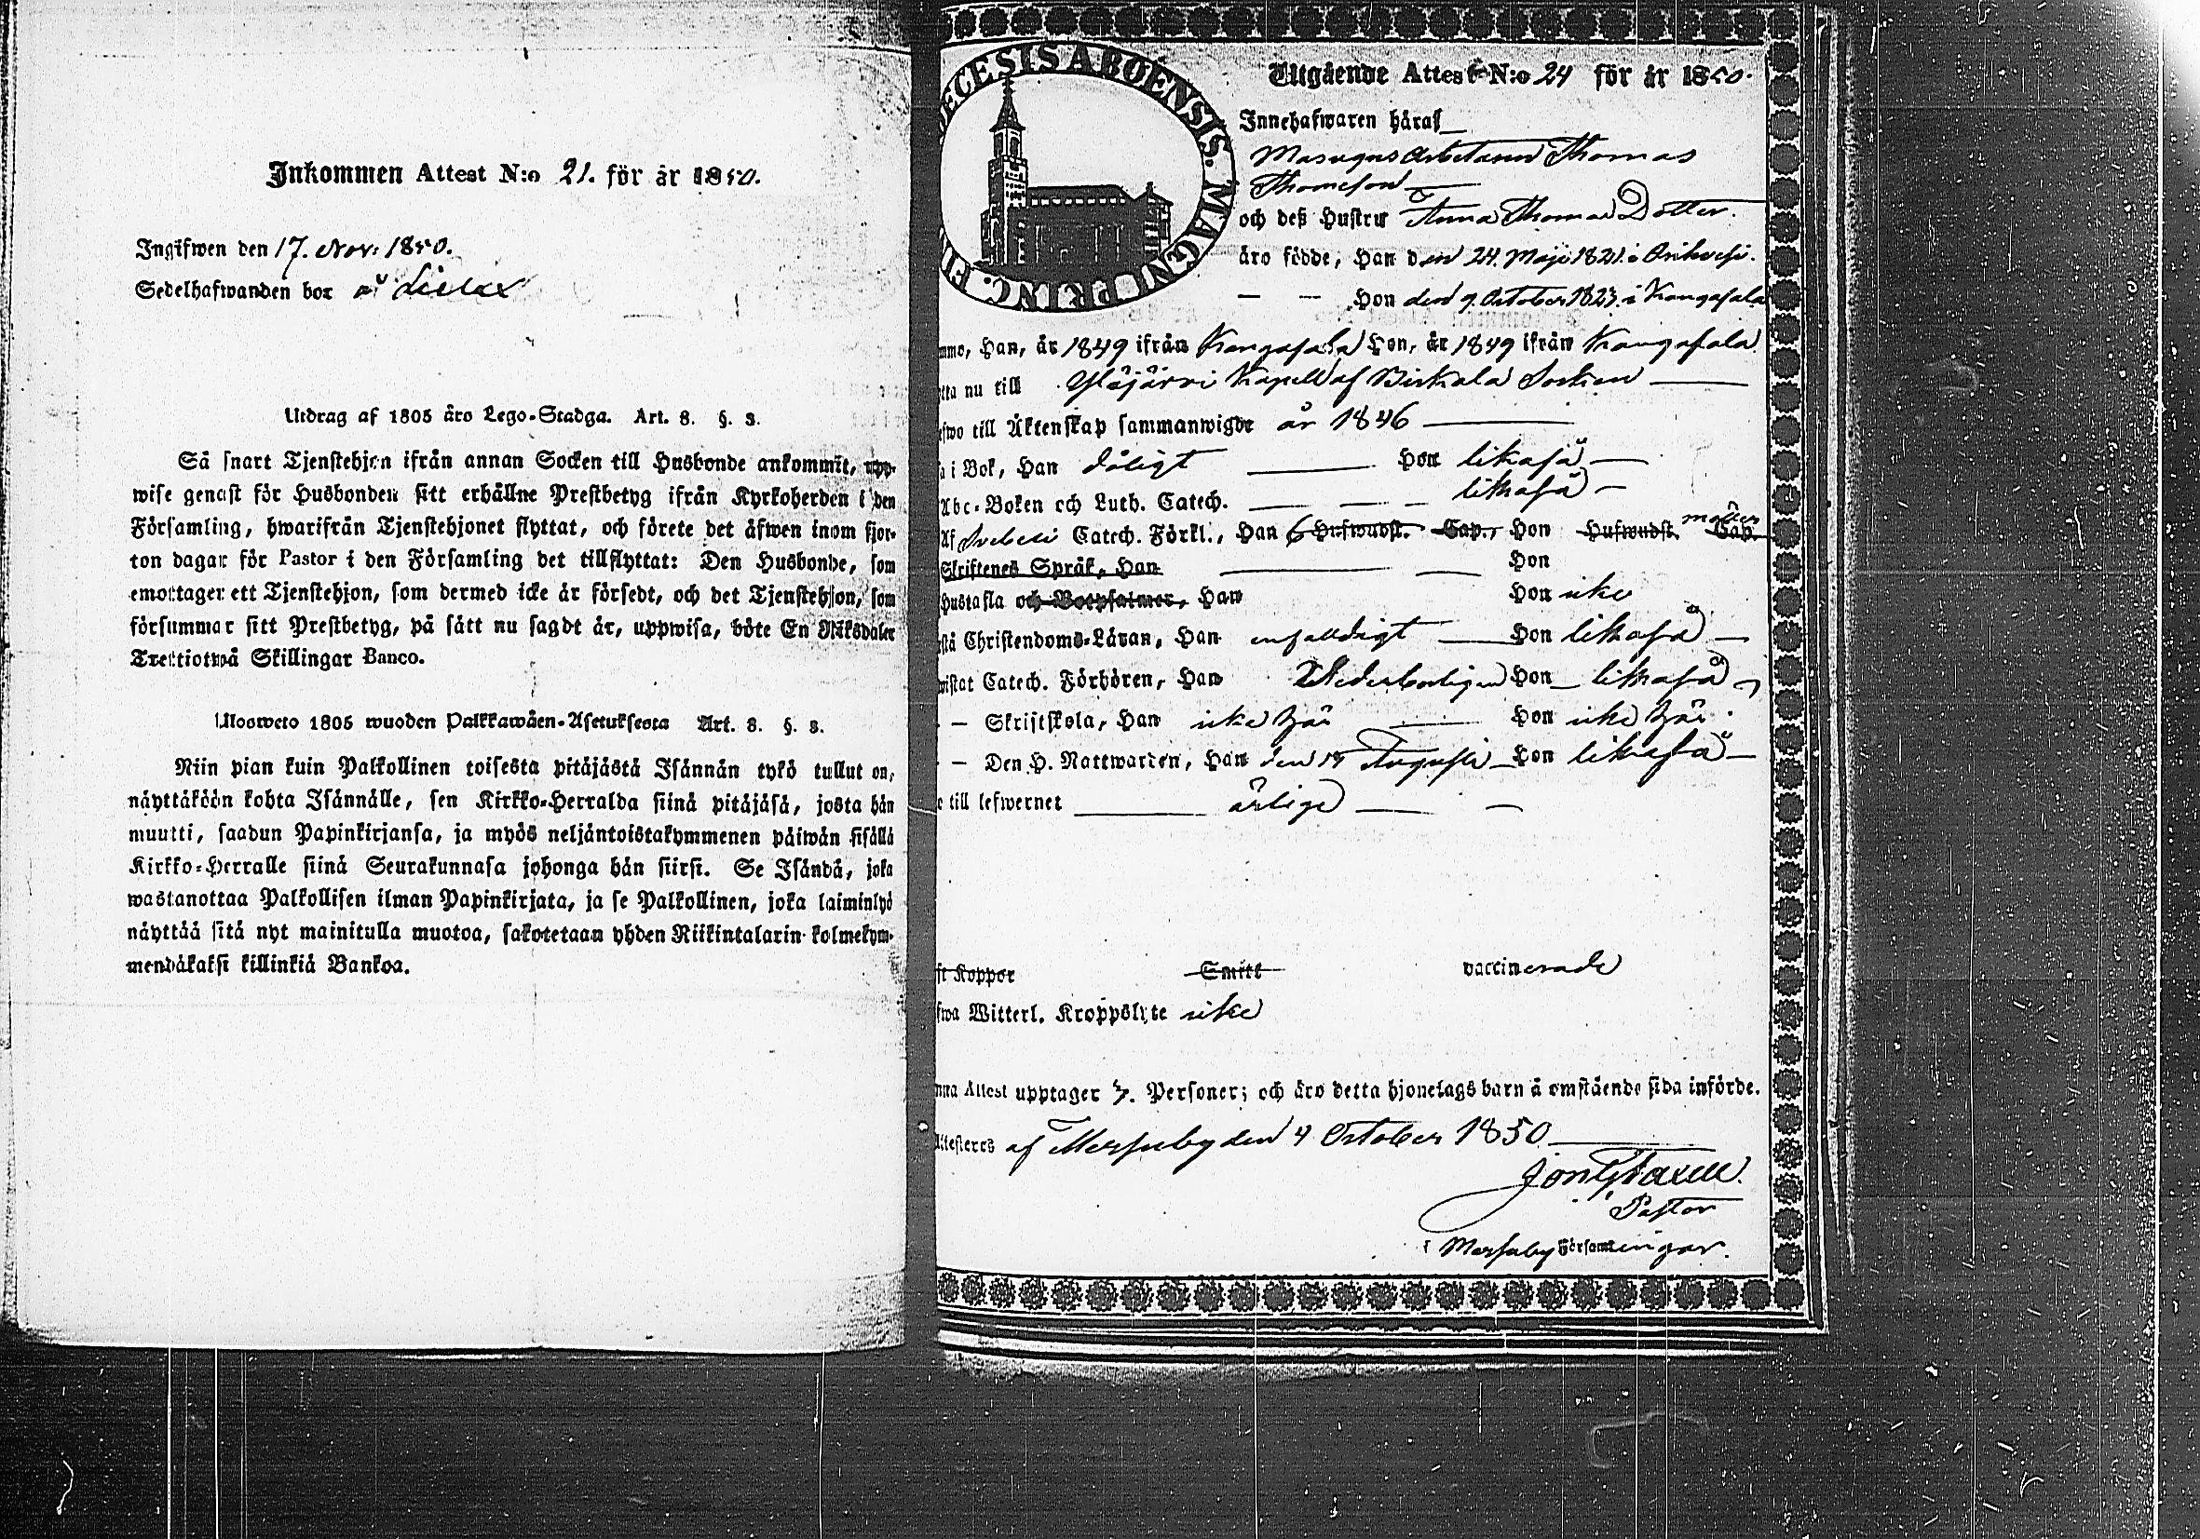 Inkommen Attest N:o 21. för år 1850.
Ingifwen den 17. Nov. 1850.
Sedelhafwanden bor å
Utdrag af 1805 åro Lego-Stadga. Art. 8. §. 3.
Så snart Tjenstehjon ifrån annan Socken till Husbonde ankommit, upp-
wise genast för Husbonden sitt erhållne Prestbetyg ifrån Kyrkoherden i den
Församling, hwarifrån Tjenstehjonet flyttat, och förete det äfwen inom fjor-
ton dagar för Pastor i den Församling det tillflyttat: Den Husbonde, som
emottager ett Tjenstehjon, som dermed icke är försedt, och det Tjenstehjon, som
försummar sitt Prestbetyg, på sätt nu sagdt är, uppwisa, böte En Riksdaler
Trettiotwå Skillingar Banco.
Ulosweto 1805 wuoden Palkkawäen-Asetuksesta Art. 8. §. 3.
Niin pian kuin Palkollinen toisesta pitäjästä Isännän tykö tullut on,
näyttäköön kohta Isännälle, sen Kirkko-Herralda siinä pitäjäsä, josta hän
muutti, saadun Papinkirjansa, ja myös neljäntoistakymmenen päiwän sisällä
Kirkko-Herralle siinä Seurakunnasa johonga hän siirsi. Se Isändä, joka
wastanottaa Palkollisen ilman Papinkirjata, ja se Palkollinen, joka laiminlyö
näyttää sitä nyt mainitulla muotoa, sakotetaan yhden Riikintalarin kolmekym-
mendäkaksi killinkiä Bankoa.
ECESIS ABOËNSIS. MAGNI PRINC. FI
Utgående Attest N:o 24 för år 1850.
Innehafwaren häraf
Masugns Arbetaren Thomas
Thomeson
och deß Hustru Anna Thomas Dotter.
äro födde, Han den 24. Maji 1821. i Orihvesi.
— — Hon den 9. October 1823. i Kangasala
mmo, Han, år 1849 ifrån Kangasala Hon, år 1849 ifrån Kangasala
tta nu till Ylöjärvi Kapell af Birkala Socken
efwo till Äktenskap sammanwigde år 1846
a i Bok, Han dåligt Hon likaså
Abc-Boken och Luth. Catech. likaså
Af Svebelii Catech. Förkl., Han 6 Hufwudst. Cap., Hon Hufwudst. Cap.
Skriftenes Språk, Han Hon
Hustafla och Botpsalmer, Han Hon icke
stå Christendoms-Läran, Han enfaldigt Hon likaså
wistat Catech. Förhören, Han Wederbörligen Hon likaså
- — Skriftskola, Han icke här Hon icke här.
- — Den H. Nattwarden, Han den Augusti Hon likaså
e till lefwernet ärlige
ft Koppor Smitt vaccinerade
fwa Witterl. Kroppslyte icke
nna Attest upptager Personer; och äro detta hjonelags barn å omstående sida införde.
Attesteras af Mersuby den 4 October 1850
Pastor
i Mersuby Församlingar.